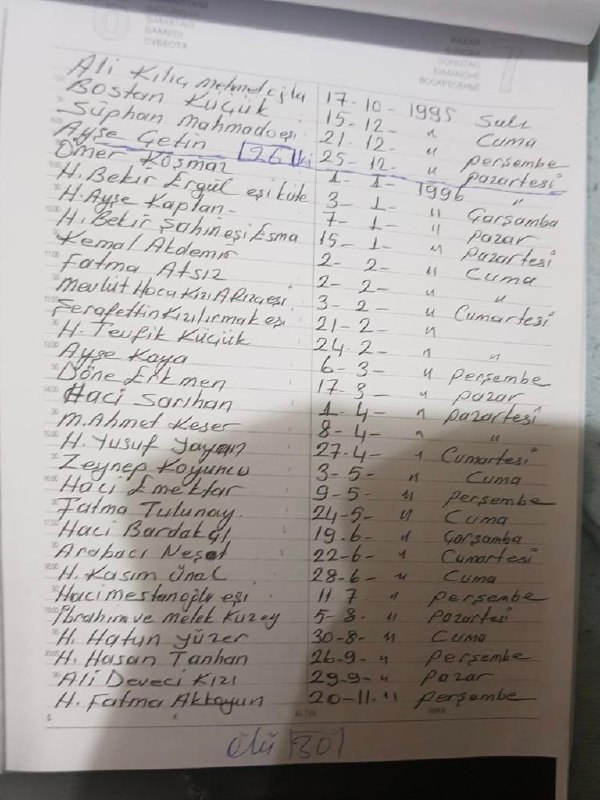 Ali Kılıç mehmet oğlu 17-10-1995 Salı
Bostan Küçük 15-12- " Cuma
Süphan mahmadoeşi 21-12- " perşembe
Ayşe Çetin 26 25-12- " pazartesi
Ömer Kosmaz 1-1-1996 "
H. Bekir Ergül eşi küte 3-1- " Çarşamba
H. Ayşe Kaplan- 7-1- " pazar
H. Bekir Şahin eşi Esma 15-1- " pazartesi
Kemal Akdemir 2-2- " Cuma
Fatma Atsız 2-2- " "
Mevlüt Hoca Kızı A Rıza eşi 3-2- " Cumartesi
Şerafettin Kızılırmak eşi 21-2- "
H. Tevfik Küçük 24-2- " "
Ayşe Kaya 6-3- " perşembe
Döne Erkmen 17-3- " pazar
Haci Sarıhan 1-4- " pazartesi
M. Ahmet Keser 8-4- " "
H. Yusuf Yayan 27-4- " Cumartesi
Zeynep Koyuncu 3-5- " Cuma
Haci Emektar 9-5- " perşembe
Fatma Tulunay 24-5- " Cuma
Haci Bardakçı 19-6- " Çarşamba
Arabacı Neşet 22-6- " Cumartesi
H. Kasım Ünal 28-6- " Cuma
Haci mestanoğlu eşi 11.7 " perşembe
İbrahim ve Melek Kuzey 5-8- " Pazartesi
H. Hatun Yüzer 30-8- " Cuma
H. Hasan Tanhan 26-9- " perşembe
Ali Deveci Kızı 29-9- " pazar
H. Fatma Akkoyun 20-11- " perşembe
ölü 30